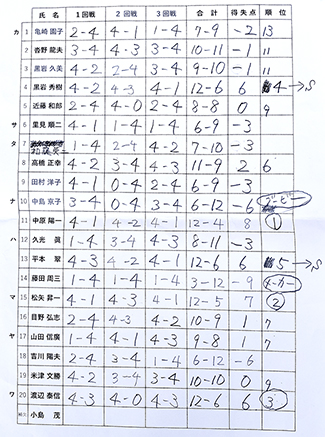 氏名 1回戦 2回戦 3回戦 合計 得失点 順位
カ 1 亀崎 園子 2-4 4-1 1-4 7-9 -2 13
2 沓野 龍夫 3-4 4-3 3-4 10-11 -1 11
3 黒岩 久美 4-2 2-4 3-4 9-10 -1 11
4 黒岩 秀樹 4-2 4-3 4-1 12-6 6 4→S
5 近藤 和郎 2-4 4-0 2-4 8-8 0 9
サ 6 里見 順二 4-1 1-4 1-4 6-9 -3
タ 7 1-4 2-4 4-2 7-10 -3
8 高橋 正幸 4-2 3-4 4-3 11-9 2 6
9 田村 洋子 4-1 0-4 2-4 6-9 -3
ナ 10 中島 京子 3-4 0-4 3-4 6-12 -6 ブービー
11 中原 陽一 4-1 4-2 4-1 12-4 8 1
ハ 12 久光 眞 1-4 3-4 4-3 8-11 -3
13 平本 翠 4-3 4-2 4-1 12-6 6 5→S
14 藤田 周三 1-4 1-4 1-4 3-12 -9 メーカー
マ 15 松矢 昇一 4-1 4-3 4-1 12-5 7 2
16 目野 弘志 2-4 4-3 4-2 10-9 1 7
ヤ 17 山田 信廣 1-4 4-1 4-3 9-8 1 7
18 吉川 陽夫 2-4 3-4 1-4 6-12 -6
19 米津 文勝 4-2 3-4 3-4 10-10 0 9
ワ 20 渡辺 泰信 4-3 4-0 4-3 12-6 6 3
小島 茂